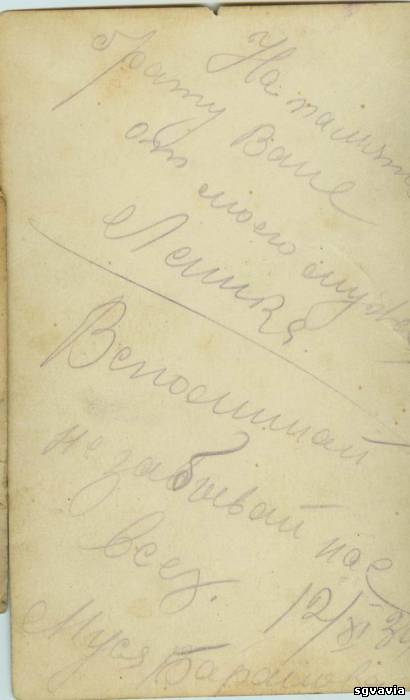 На память
брату Ване
от моего мужа
Лёпика
Вспоминай
не забывай нас
всех.
12/XI 3
Муся Барашова
sgvavia